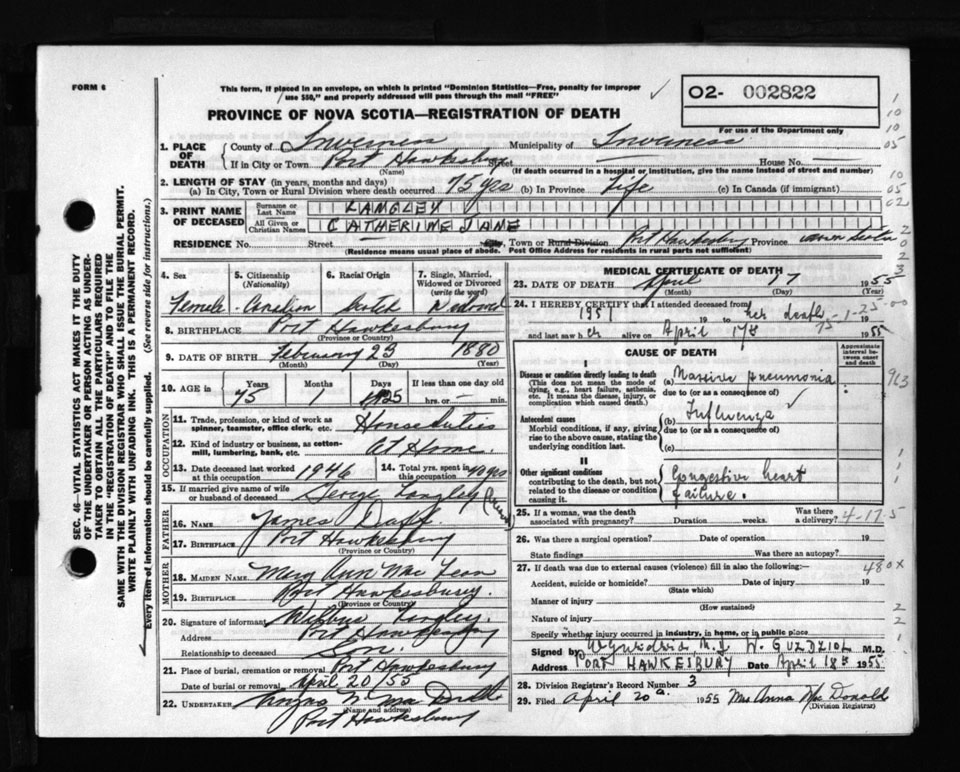 FORM 6
This form, if placed in an envelope, on which is printed "Dominion Statistics—Free, penalty for improper
use $50," and properly addressed will pass through the mail "FREE"
O2- 002822
For use of the Department only
PROVINCE OF NOVA SCOTIA—REGISTRATION OF DEATH
1. PLACE OF DEATH
County of Inverness Municipality of Inverness
If in City or Town Port Hawkesbury Street — House No. —
(Name) (If death occurred in a hospital or institution, give the name instead of street and number)
2. LENGTH OF STAY (in years, months and days)
(a) In City, Town or Rural Division where death occurred 75 yrs (b) In Province Life (c) In Canada (if immigrant)
3. PRINT NAME OF DECEASED
Surname or Last Name LANGLEY
All Given or Christian Names CATHERINE JANE
RESIDENCE No. Street — Town or Rural Division Port Hawkesbury Province Nova Scotia
(Residence means usual place of abode. Post Office Address for residents in rural parts not sufficient)
4. Sex 5. Citizenship (Nationality) 6. Racial Origin 7. Single, Married, Widowed or Divorced (write the word)
Female Canadian Scotch Widowed
8. BIRTHPLACE Port Hawkesbury
(Province or Country)
9. DATE OF BIRTH February 23 1880
(Month) (Day) (Year)
10. AGE in Years Months Days If less than one day old
75 1 25 hrs. or — min.
OCCUPATION
11. Trade, profession, or kind of work as spinner, teamster, office clerk, etc. House duties
12. Kind of industry or business, as cotton-mill, lumbering, bank, etc. At Home.
13. Date deceased last worked at this occupation 1946 14. Total yrs. spent in this occupation 40 yrs
15. If married give name of wife or husband of deceased George Langley
FATHER
16. NAME James Duff
17. BIRTHPLACE Port Hawkesbury
(Province or Country)
MOTHER
18. MAIDEN NAME Mary Ann Mac Lean
19. BIRTHPLACE Port Hawkesbury.
(Province or Country)
20. Signature of informant Langley
Address Port Hawkesbury
Relationship to deceased Son.
21. Place of burial, cremation or removal Port Hawkesbury
Date of burial or removal April 20/55
22. UNDERTAKER
Port Hawkesbury
MEDICAL CERTIFICATE OF DEATH
23. DATE OF DEATH April 17 1955
(Month) (Day)
24. I HEREBY CERTIFY that I attended deceased from
1951 19 to her death 19
75-1-25-00
and last saw her alive on April 17th 1955
CAUSE OF DEATH
Approximate interval between onset and death
I
Disease or condition directly leading to death
(This does not mean the mode of dying, e.g., heart failure, asthenia, etc. It means the disease, injury, or complication which caused death.)
(a) Massive pneumonia
due to (or as a consequence of)
Antecedent causes
Morbid conditions, if any, giving rise to the above cause, stating the underlying condition last.
(b) Influenza ✓
due to (or as a consequence of)
(c)
II
Other significant conditions
contributing to the death, but not related to the disease or condition causing it.
Congestive heart failure.
25. If a woman, was the death associated with pregnancy? Duration weeks. Was there a delivery? 4-17-5
26. Was there a surgical operation? Date of operation 19
State findings Was there an autopsy?
27. If death was due to external causes (violence) fill in also the following:—
480x
Accident, suicide or homicide? Date of injury 19
(State which)
Manner of injury
(How sustained)
Nature of injury
Specify whether injury occurred in industry, in home, or in public place
Signed by W. GUZDZIOL M.D.
Address PORT HAWKESBURY Date April 18th 1955
28. Division Registrar's Record Number 3
29. Filed April 20 1955 Mrs Anna Mac Donald
(Division Registrar)
SEC. 46—VITAL STATISTICS ACT MAKES IT THE DUTY
OF THE UNDERTAKER OR PERSON ACTING AS UNDER-
TAKER TO OBTAIN ALL THE PARTICULARS REQUIRED
IN THE "REGISTRATION OF DEATH" AND TO FILE THE
SAME WITH THE DIVISION REGISTRAR WHO SHALL ISSUE THE BURIAL PERMIT.
WRITE PLAINLY WITH UNFADING INK. THIS IS A PERMANENT RECORD.
Every item of information should be carefully supplied. (See reverse side for instructions.)